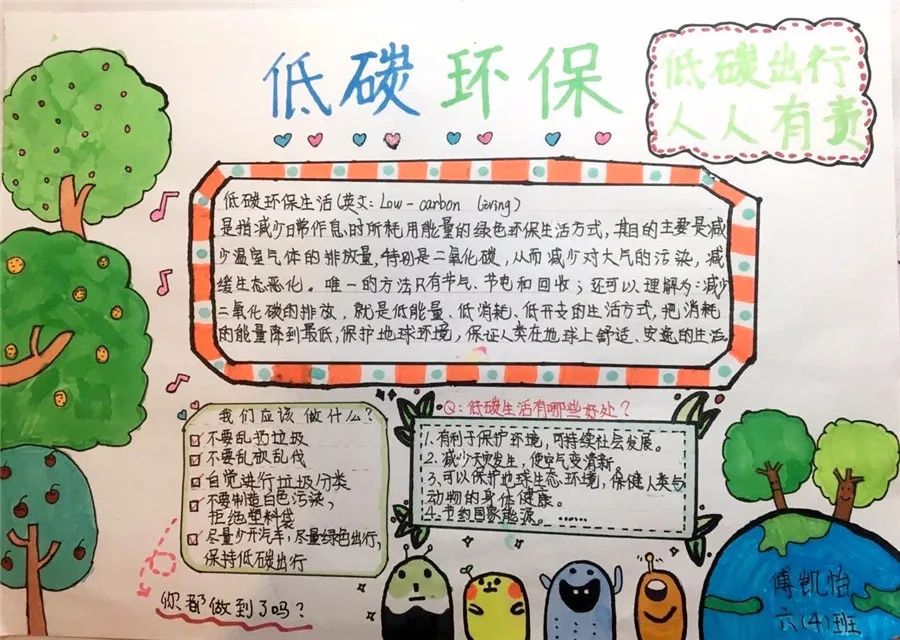 低碳环保
低碳出行
人人有责
低碳环保生活(英文: Low-carbon living)
是指减少日常作息时所耗用能量的绿色环保生活方式，其目的主要是减
少温室气体的排放量，特别是二氧化碳，从而减少对大气的污染，减
缓生态恶化。唯一的方法只有节气、节电和回收；还可以理解为：减少
二氧化碳的排放，就是低能量、低消耗、低开支的生活方式，把消耗
的能量降到最低，保护地球环境，保证人类在地球上舒适、安逸的生活。
我们应该做什么?
不要乱扔垃圾
不要乱放乱伐
自觉进行垃圾分类
不要制造白色污染，
拒绝塑料袋
尽量少开汽车，尽量绿色出行，
保持低碳出行
你都做到了吗?
Q: 低碳生活有哪些好处?
1. 有利于保护环境，可持续社会发展。
2. 减少天灾发生，使空气变清新。
3. 可以保护地球生态环境，保健人类与
动物的身体健康。
4. 节约国家能源。……
傅凯怡
六(4)班